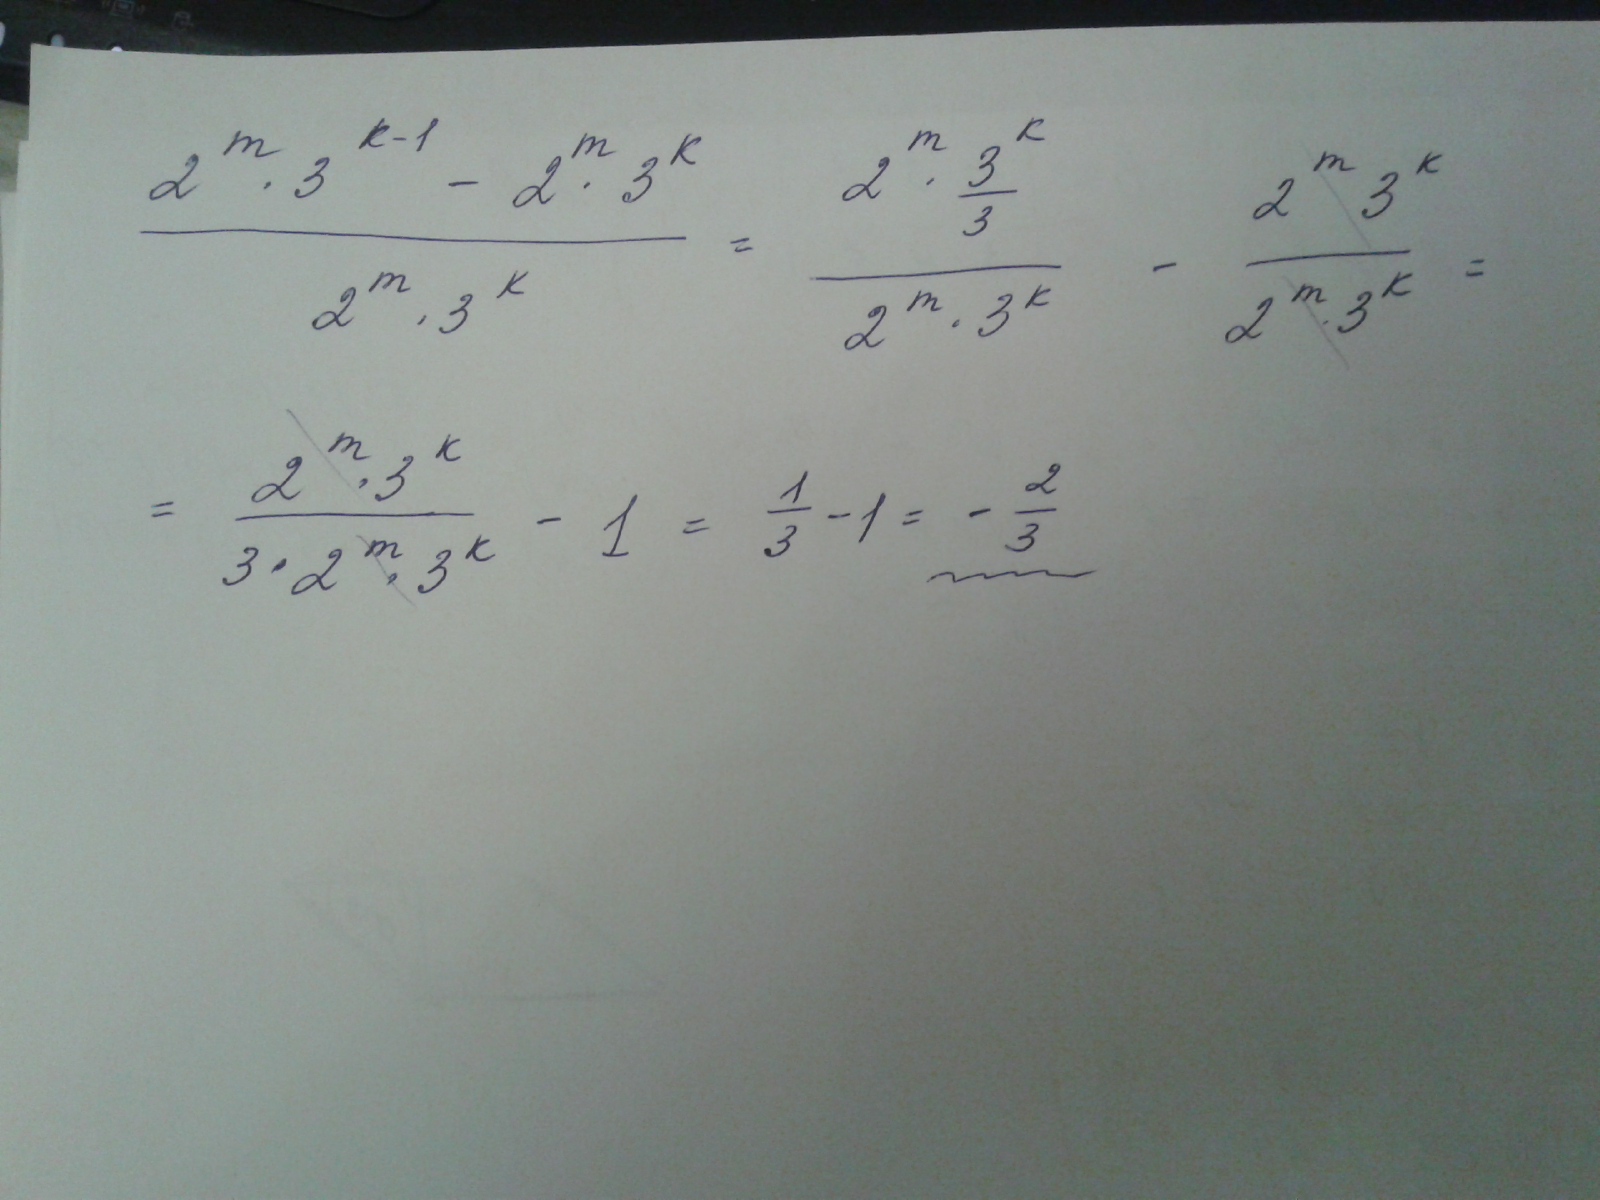 \frac{2^m \cdot 3^{k-1} - 2^m \cdot 3^k}{2^m \cdot 3^k} = \frac{2^m \cdot \frac{3^k}{3}}{2^m \cdot 3^k} - \frac{2^m 3^k}{2^m \cdot 3^k} =
= \frac{2^m \cdot 3^k}{3 \cdot 2^m \cdot 3^k} - 1 = \frac{1}{3} - 1 = -\frac{2}{3}